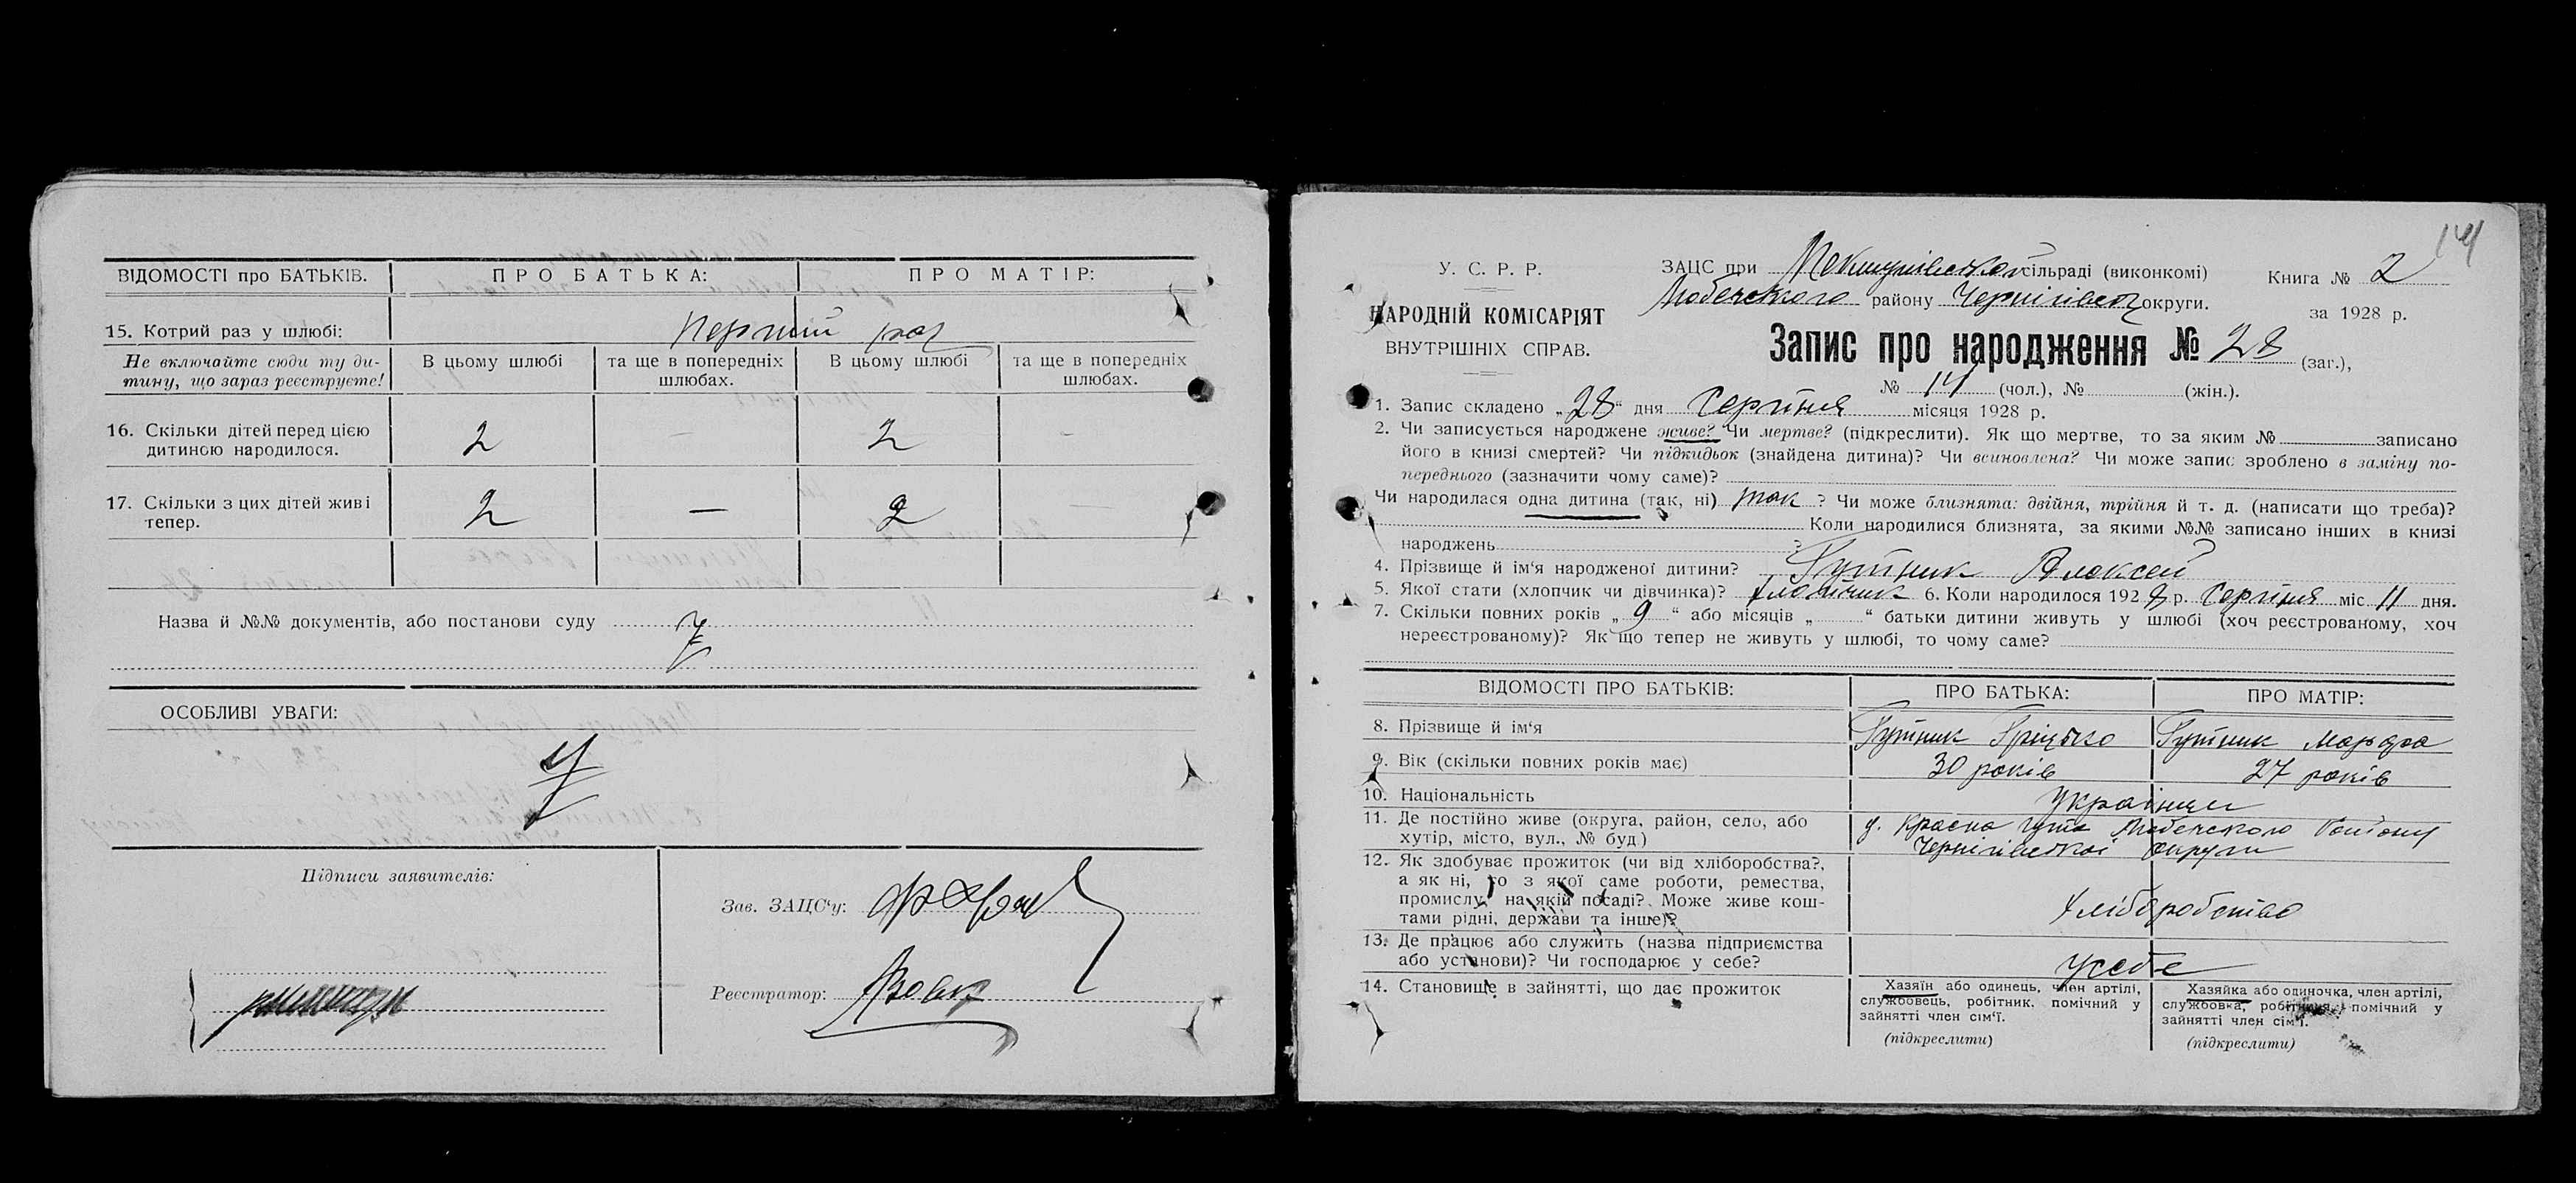 ВІДОМОСТІ про БАТЬКІВ. ПРО БАТЬКА: ПРО МАТІР:
15. Котрий раз у шлюбі: перший раз
Не включайте сюди ту ди- В цьому шлюбі та ще в попередніх В цьому шлюбі та ще в попередніх
тину, що зараз реєструєте! шлюбах. шлюбах.
16. Скільки дітей перед цією 2 — 2 —
дитиною народилося.
17. Скільки з цих дітей живі 2 — 2 —
тепер.
Назва й №№ документів, або постанови суду
ОСОБЛИВІ УВАГИ:
Підписи заявителів:
Зав. ЗАЦС'у:
Реєстратор: Вовк
14
У. С. Р. Р.
НАРОДНІЙ КОМІСАРІЯТ
ВНУТРІШНІХ СПРАВ.
ЗАЦС при сільраді (виконкомі) Книга № 2
Любечского району Чернігівськ округи. за 1928 р.
Запис про народження № 28 (заг.),
№ 14 (чол.), № (жін.).
1. Запис складено „28“ дня Серпня місяця 1928 р.
2. Чи записується народжене живе? Чи мертве? (підкреслити). Як що мертве, то за яким № записано
його в книзі смертей? Чи підкидьок (знайдена дитина)? Чи всиновлена? Чи може запис зроблено в заміну по-
переднього (зазначити чому саме)?
Чи народилася одна дитина (так, ні) так ? Чи може близнята: двійня, трійня й т. д. (написати що треба)?
Коли народилися близнята, за якими №№ записано інших в книзі
народжень ?
4. Прізвище й ім'я народженої дитини? Гутник Алексей
5. Якої стати (хлопчик чи дівчинка)? хлопчик 6. Коли народилося 1928 р. Серпня міс 11 дня.
7. Скільки повних років „9“ або місяців „ “ батьки дитини живуть у шлюбі (хоч реєстрованому, хоч
нереєстрованому)? Як що тепер не живуть у шлюбі, то чому саме?
ВІДОМОСТІ ПРО БАТЬКІВ: ПРО БАТЬКА: ПРО МАТІР:
8. Прізвище й ім'я Гутник Гріцько Гутник
9. Вік (скільки повних років має) 30 років 27 років
10. Національність Українци
11. Де постійно живе (округа, район, село, або д. Красна Гута Любечского району
хутір, місто, вул., № буд.) Чернігівської округи
12. Як здобуває прожиток (чи від хліборобства?,
а як ні, то з якої саме роботи, ремества,
промислу, на якій посаді? Може живе кош- хліборобство
тами рідні, держави та інше)?
13. Де працює або служить (назва підприємства
або установи)? Чи господарює у себе? усебе
14. Становище в зайнятті, що дає прожиток
Хазяїн або одинець, член артілі,
службовець, робітник, помічний у
зайнятті член сім'ї.
(підкреслити)
Хазяйка або одиночка, член артілі,
службовка, робітниця, помічний у
зайнятті член сім'ї.
(підкреслити)